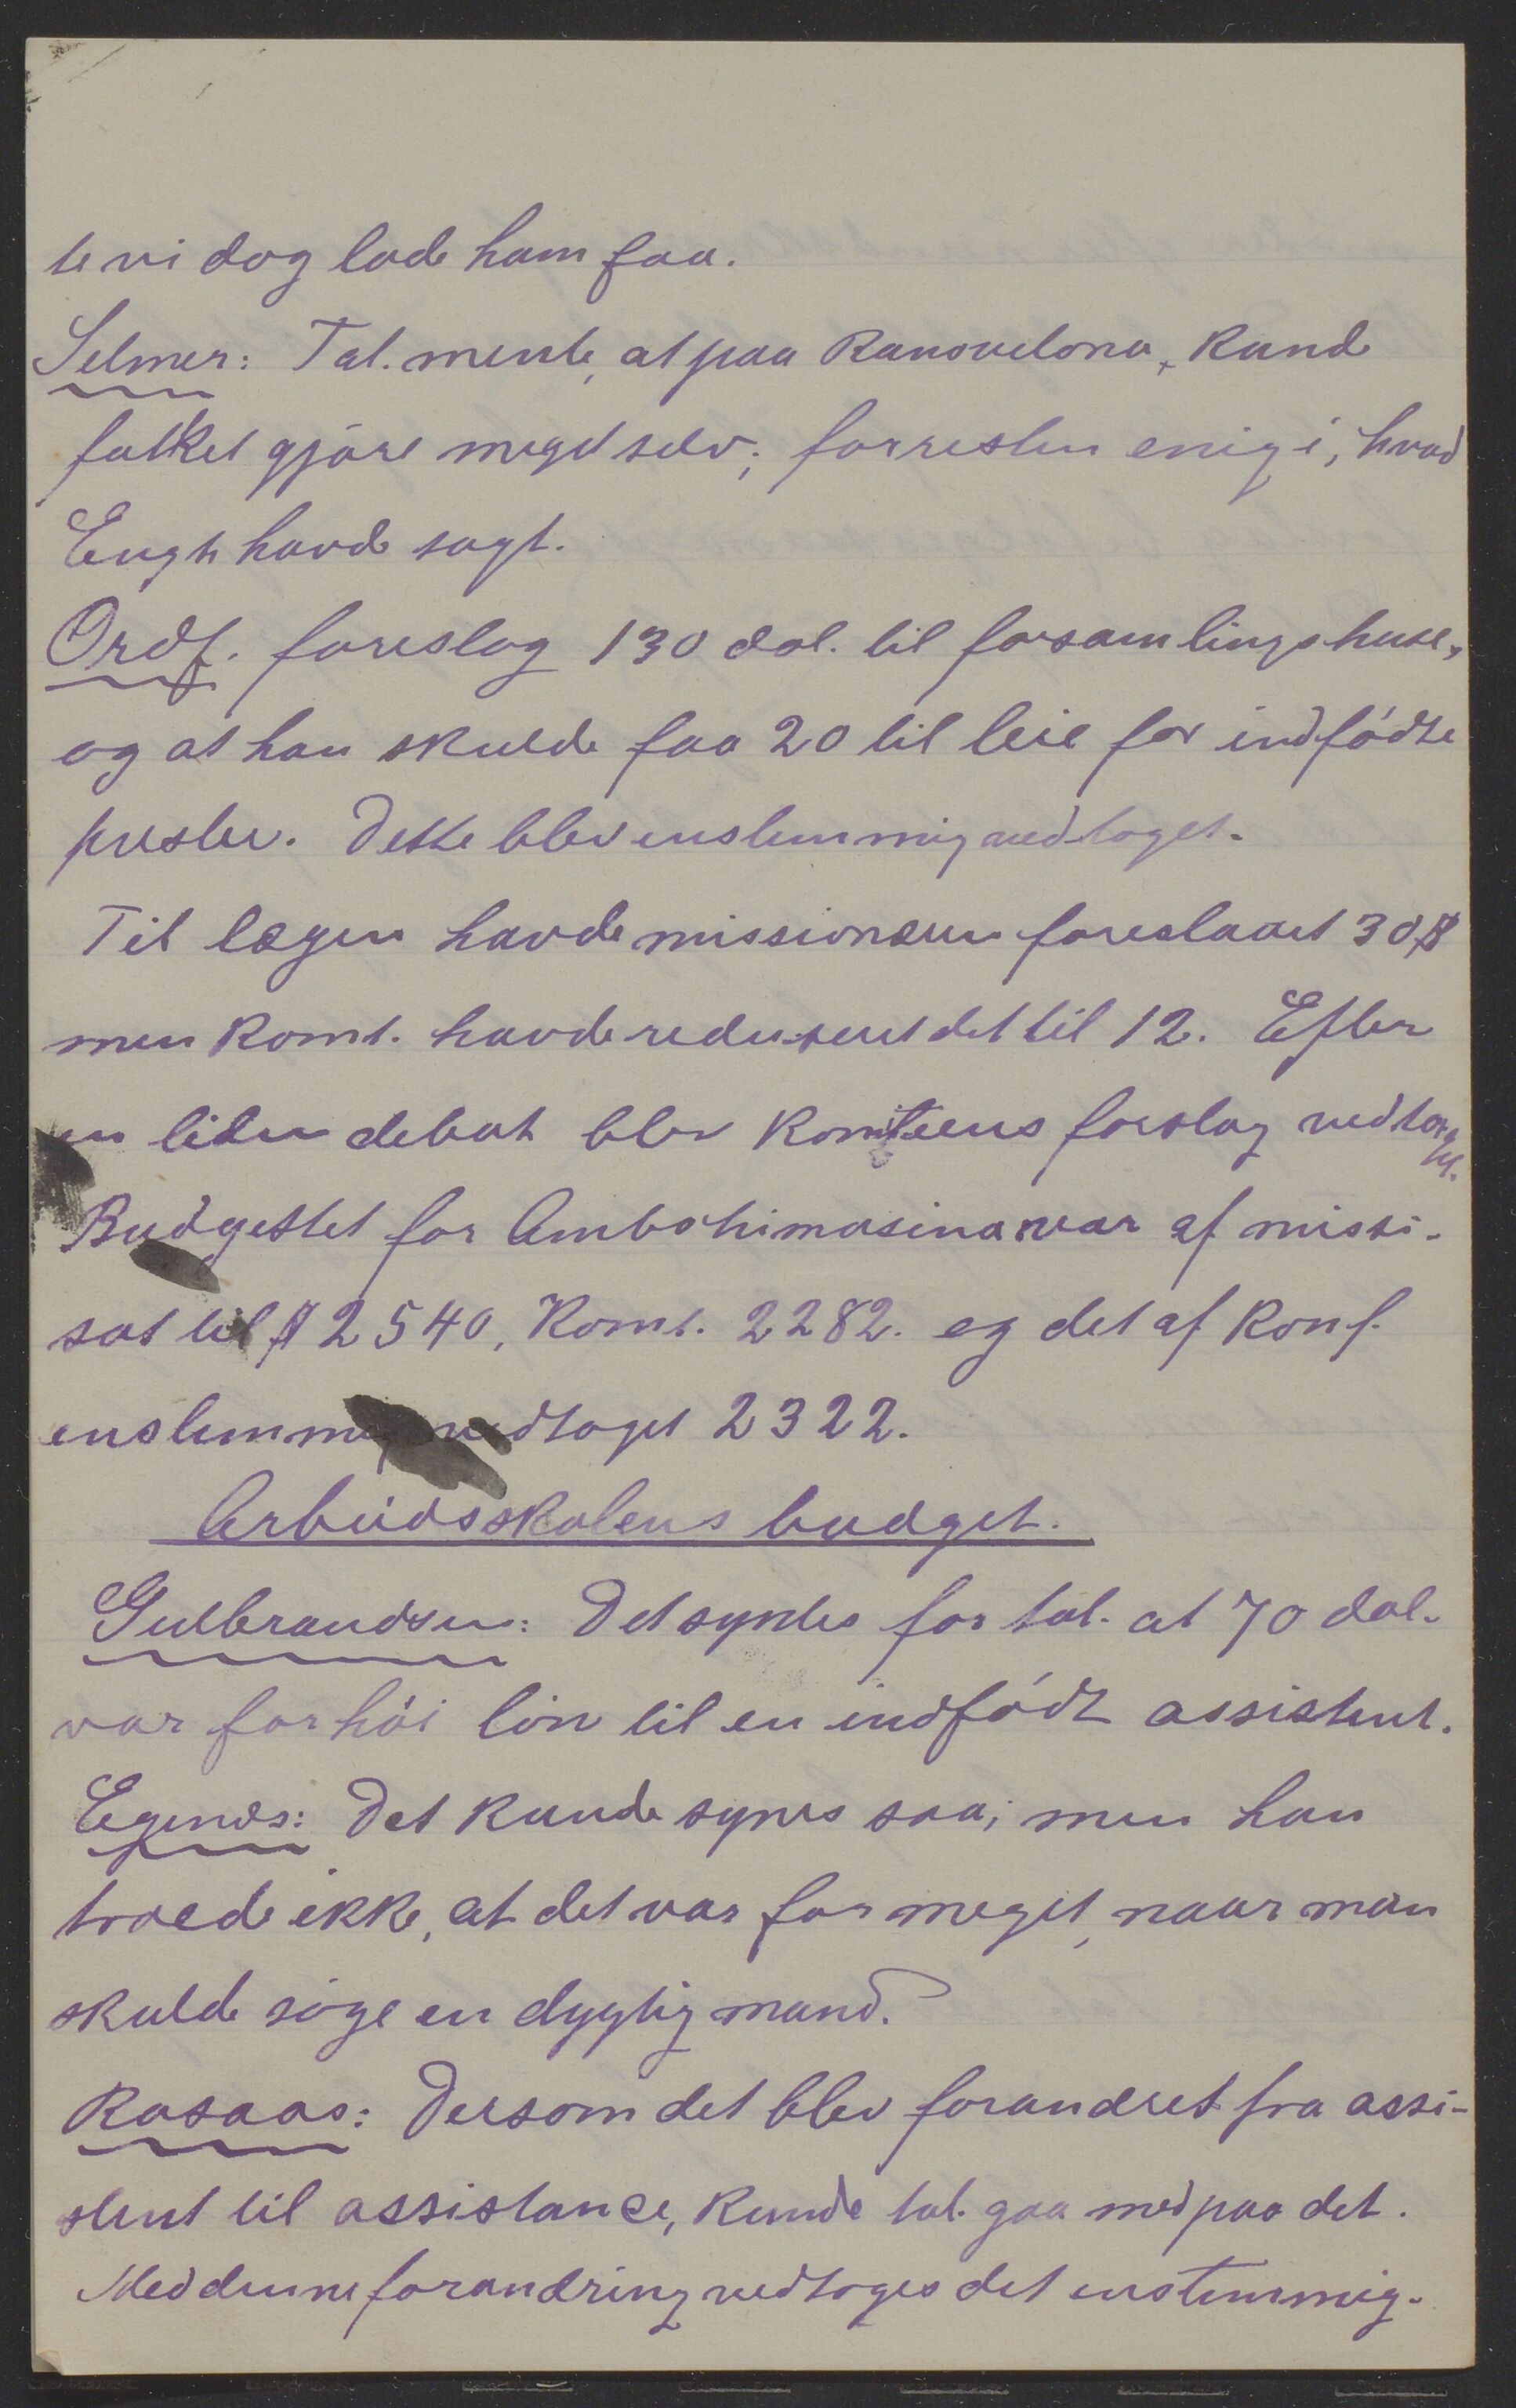 te vi dog lade ham faa.
Selmer: Tal. mente, at paa Ranovelona, kunde
folket gjøre meget selv; forresten enig i, hvad
Engh havde sagt.
Ordf. foreslog 130 dol. til forsamlingshuse,
og at han skulde faa 20 til leie for indfødte
prester. Dette blev enstemmig vedtaget.
Til lægen havde missionæren foreslaaet 30 $
men Komt. havde redusert det til 12. Efter
en liden debat blev Komiteens forslag vedtaget.
Budgettet for Ambohimasina var af missi.
sat til $ 2540, Komt. 2282. og det af Konf.
enstemmig vedtaget 2322.
Arbeidsskolens budget.
Gulbrandsen: Det syntes for tal. at 70 dol.
var for høi løn til en indfødt assistent.
Egenæs: Det kunde synes saa; men han
troede ikke, at det var for meget, naar man
skulde søge en dygtig mand.
Rosaas: Dersom det blev forandret fra assi-
stent til assistance, kunde tal. gaa med paa det.
Med denne forandring vedtoges det enstemmig.